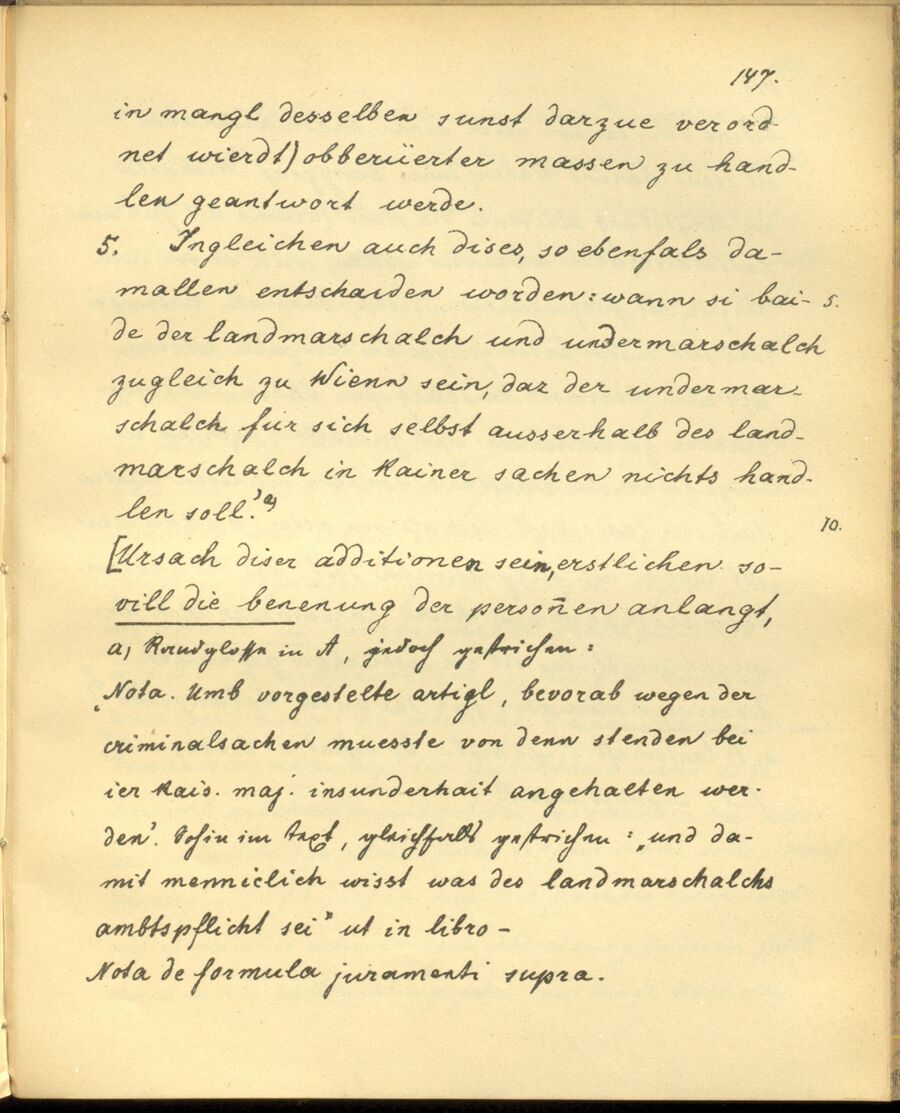 147.
in mangl desselben sunst darzue verord-
net wierdt) obberüerter massen zu hand-
len geantwort werde.
5. Ingleichen auch dises, so ebenfals da-
mallen entschaiden worden: wann si bai- 5.
de der landmarschalch und undermarschalch
zugleich zu Wienn sein, daz der undermar-
schalch für sich selbst ausserhalb des land-
marschalch in kainer sachen nichts hand-
len soll.' a)
10.
[Ursach diser additionen sein, erstlichen so-
vill die benenung der persoñen anlangt,
a) Randglosse in A, jedoch gestrichen:
‚Nota. Umb vorgestelte artigl, bevorab wegen der
criminalsachen muesste von denn stenden bei
ier kais. maj. insunderhait angehalten wer-
den'. Sohin im Text, gleichfalls gestrichen: „und da-
mit menniclich wisst was des landmarschalchs
ambtspflicht sei" ut in libro -
Nota de formula juramenti supra.